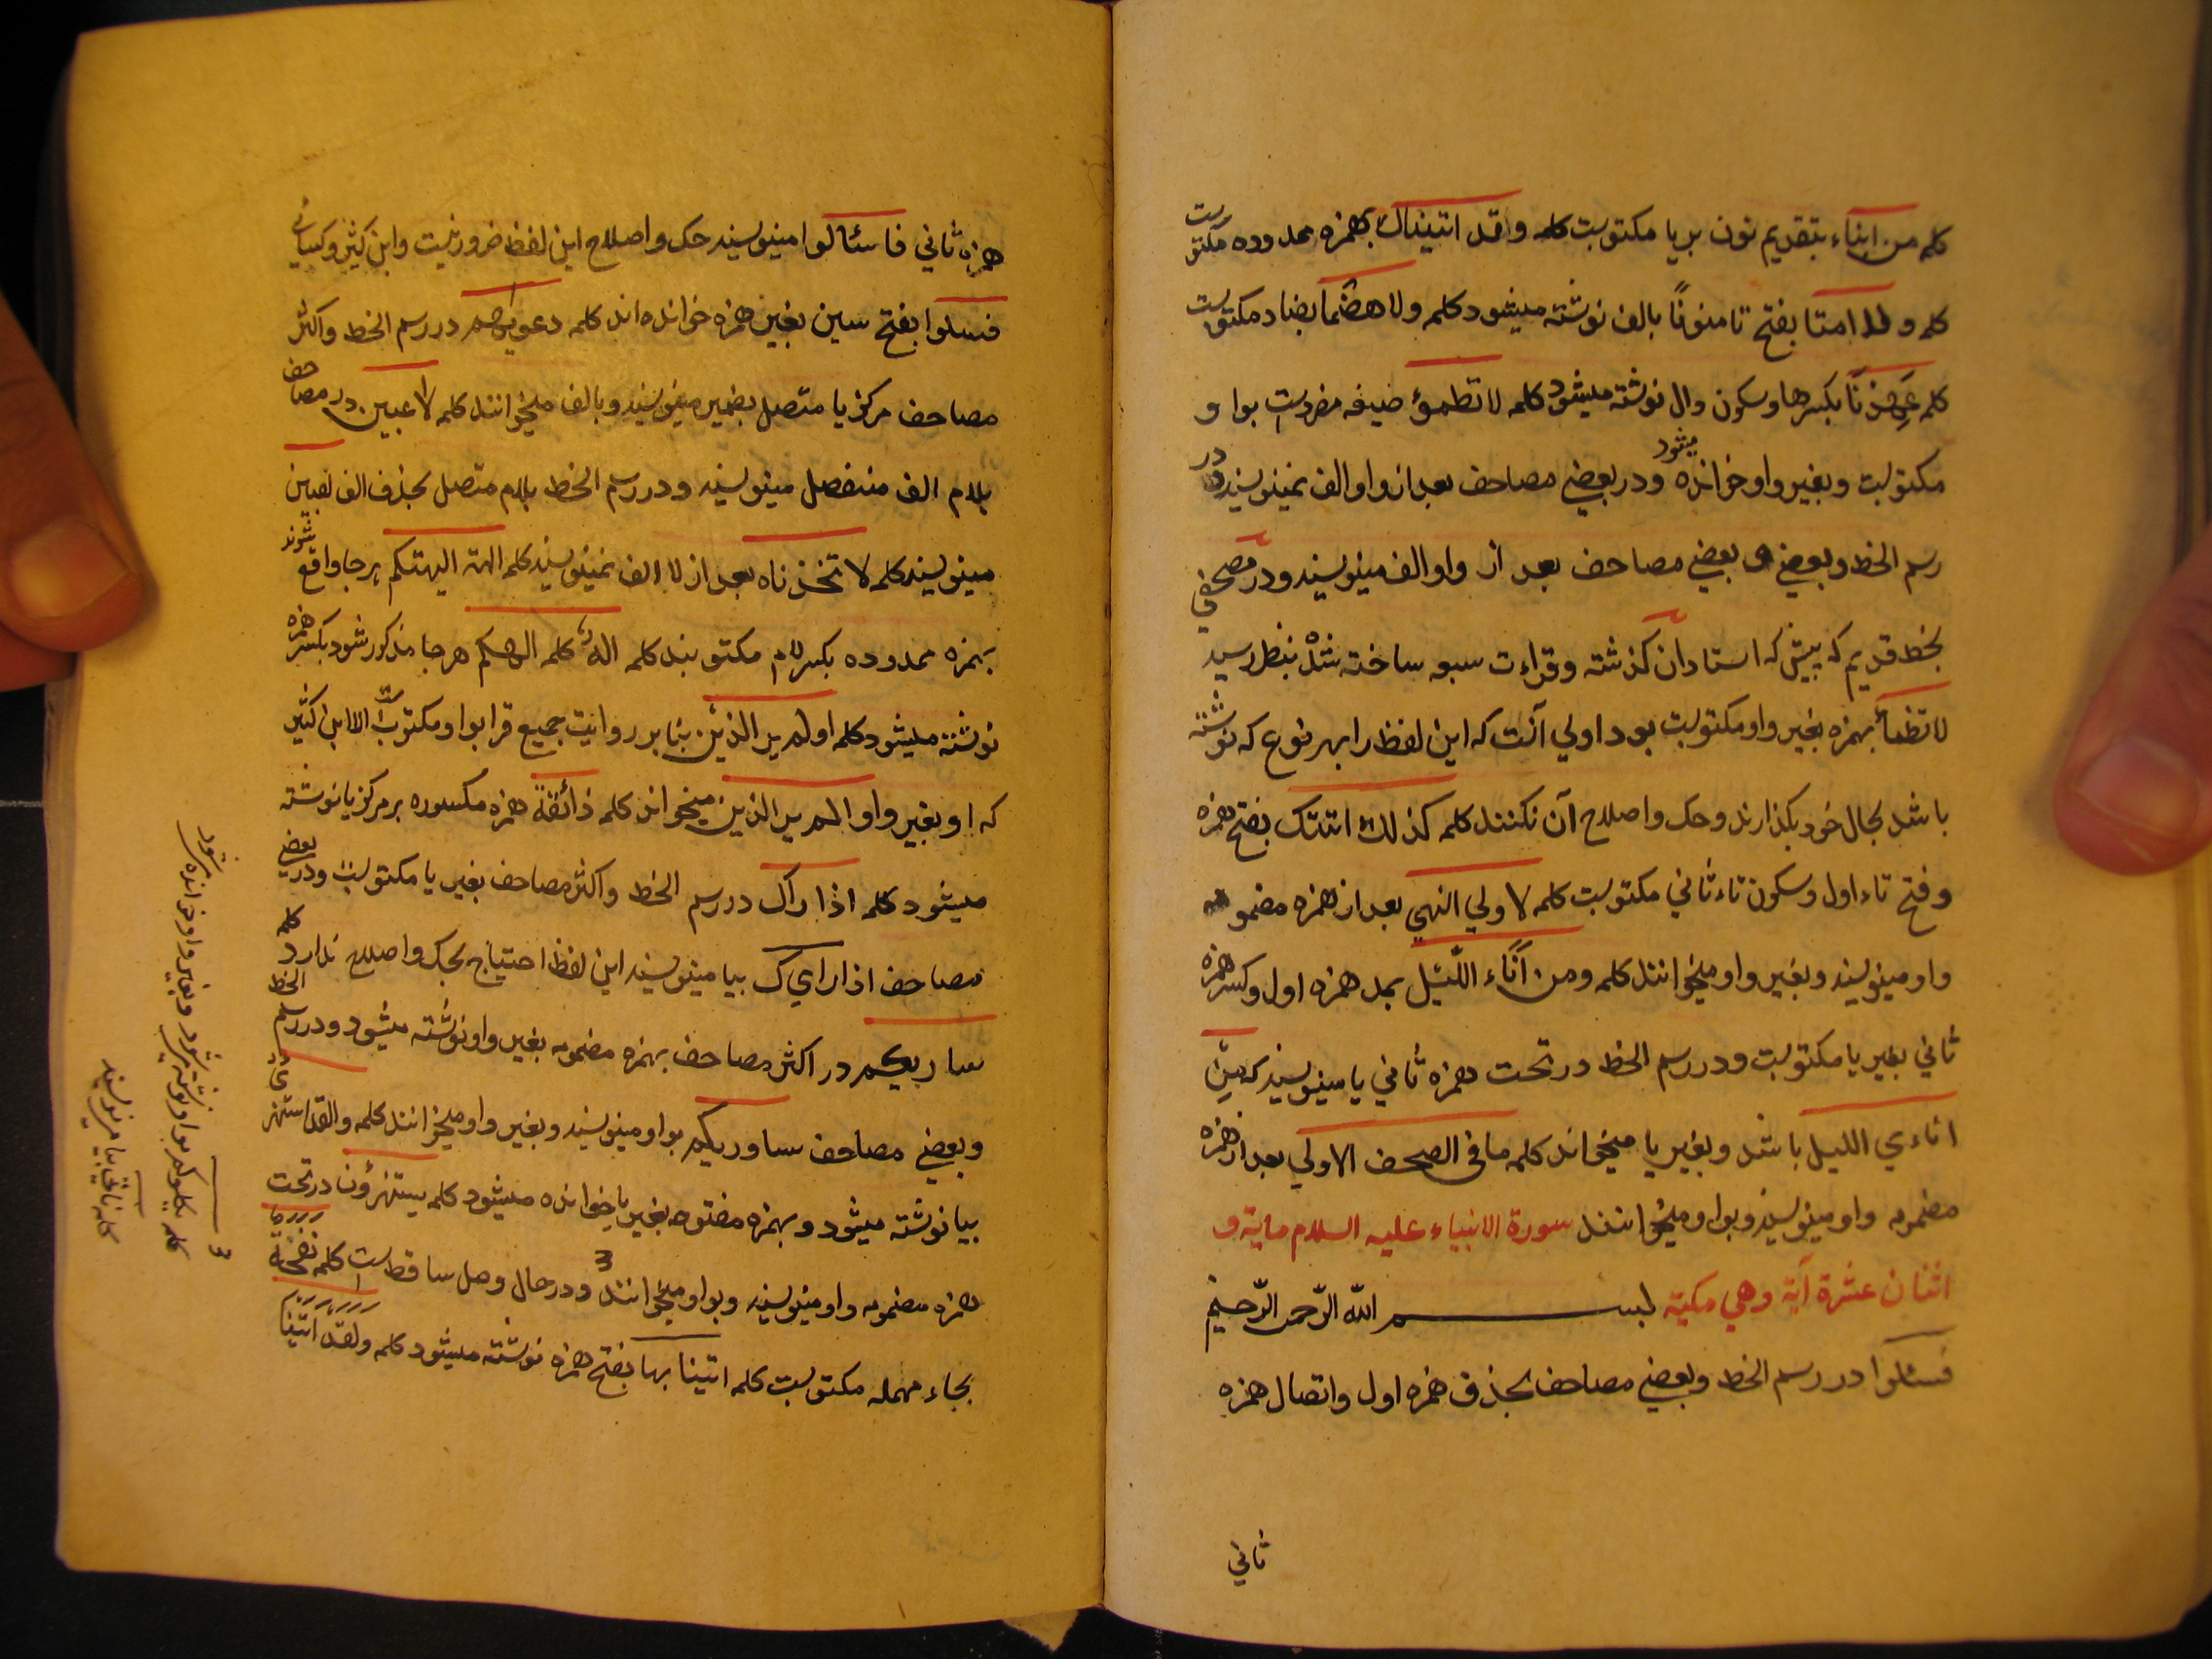 کلمه من انباء بتقدیم نون بر یا مکتوبست کلمه وقد اتیناک بهمزه ممدوده مکتوبست
کلمه ولا امتا بفتح تا منونًا بالف نوشته میشود کلمه ولا هضما بضاد مکتوبست
کلمه عَهِدْنَا بکسر ها و سکون دال نوشته میشود کلمه لا تظمؤ صیغه مفردست بواو
مکتوبست وبغیر واو خوانده میشود ودر بعضی مصاحف بعد از واو الف نمینویسند ودر
رسم الخط وبعضی بعضی مصاحف بعد از واو الف مینویسند ودر مصحفی
بخط قدیم که پیش که استادان گذشته وقراءت سبعه ساخته شده بنظر رسید
لا تظمأ بهمزه بغیر واو مکتوبست بود اولی آنست که این لفظ را بهر نوع که نوشته
باشد بحال خود بگذارند وحک واصلاح آن نکنند کلمه کذلک اتتک بفتح همزه
وفتح تاء اول وسکون تاء ثانی مکتوبست کلمه لاولی النهی بعد از همزه مضمومه
واو مینویسند وبغیر واو میخوانند کلمه ومن آنَاء اللَّیل بمد همزه اول وکسر همزه
ثانی بغیر یا مکتوبست ودر رسم الخط در تحت همزه ثانی یا مینویسند که من
اناءی اللیل باشد وبغیر یا میخوانند کلمه ما فی الصحف الاولی بعد از همزه
مضمومه واو مینویسند وبواو میخوانند سورة الانبیاء علیه السلام مایة و
اثنان عشرة آیة وهی مکیة بسم الله الرّحمن الرّحیم
فسئلوا در رسم الخط وبعضی مصاحف بحذف همزه اول واتصال همزه
ثانی
همزه ثانی فاسئالوا مینویسند حک واصلاح این لفظ ضرور نیست وابن کثیر وکسائی
فسلوا بفتح سین بغیر همزه خوانده اند کلمه دعویهم در رسم الخط واکثر
مصاحف مرکز یا متصل بضمیر مینویسند وبالف میخوانند کلمه لاعبین در مصاحف
بلام الف منفصل مینویسند ودر رسم الخط بلام متصل بحذف الف لعبین
مینویسند کلمه لا تخذناه بعد از لا الف نمینویسند کلمه الهة الهتکم هر جا واقع شوند
بهمزه ممدوده بکسر لام مکتوبند کلمه اله کلمه الهکم هر جا مذکور شود بکسر همزه
نوشته میشود کلمه اولم یر الذین بنابر روایت جمیع قرا بواو مکتوبست الا ابن کثیر
که او بغیر واو الم یر الذین میخواند کلمه ذائقة همزه مکسوره بر مرکز یا نوشته
میشود کلمه اذا راک در رسم الخط واکثر مصاحف بغیر یا مکتوبست ودر بعضی
مصاحف اذا رای ک بیا مینویسند این لفظ احتیاج بحک واصلاح ندارد کلمه
ساریکم در اکثر مصاحف بهمزه مضمومه بغیر واو نوشته میشود ودر رسم الخط
وبعضی مصاحف ساوریکم بواو مینویسند وبغیر واو میخوانند کلمه ولقد استهزئ
بیا نوشته میشود وبهمزه مفتوحه بغیر یا خوانده میشود کلمه یستهزؤن در تحت
همزه مضمومه واو مینویسند وبواو میخوانند ودر حال وصل ساقطست کلمه نفحة
بحاء مهمله مکتوبست کلمه اتینا بها بفتح همزه نوشته میشود کلمه ولقد اتینا
کلمه یکلوکم بواو نوشته میشود وبغیر واو خوانده شود